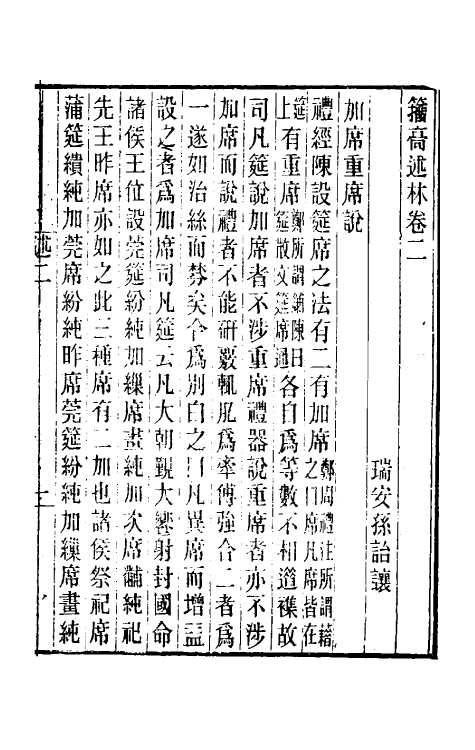 籀高述林卷二
瑞安孫詒讓
加席重席說
禮經陳設筵席之法有二有加席鄭周禮注所謂藉之曰席凡席皆在
筵上有重席鄭所謂鋪陳曰筵散文筵席通各自為等數不相遝襍故
司凡筵說加席者不涉重席禮器說重席者亦不涉
加席而說禮者不能研覈輒凥為牽傅強合二者為
一遂如治絲而棼矣今為別白之曰凡異席而增益
設之者為加席司凡筵云凡大朝覲大饗射封國命
諸侯王位設莞筵紛純加繅席畫純加次席黼純祀
先王昨席亦如之此三種席有二加也諸侯祭祀席
蒲筵繢純加莞席紛純昨席莞筵紛純加繅席畫純
述二
一